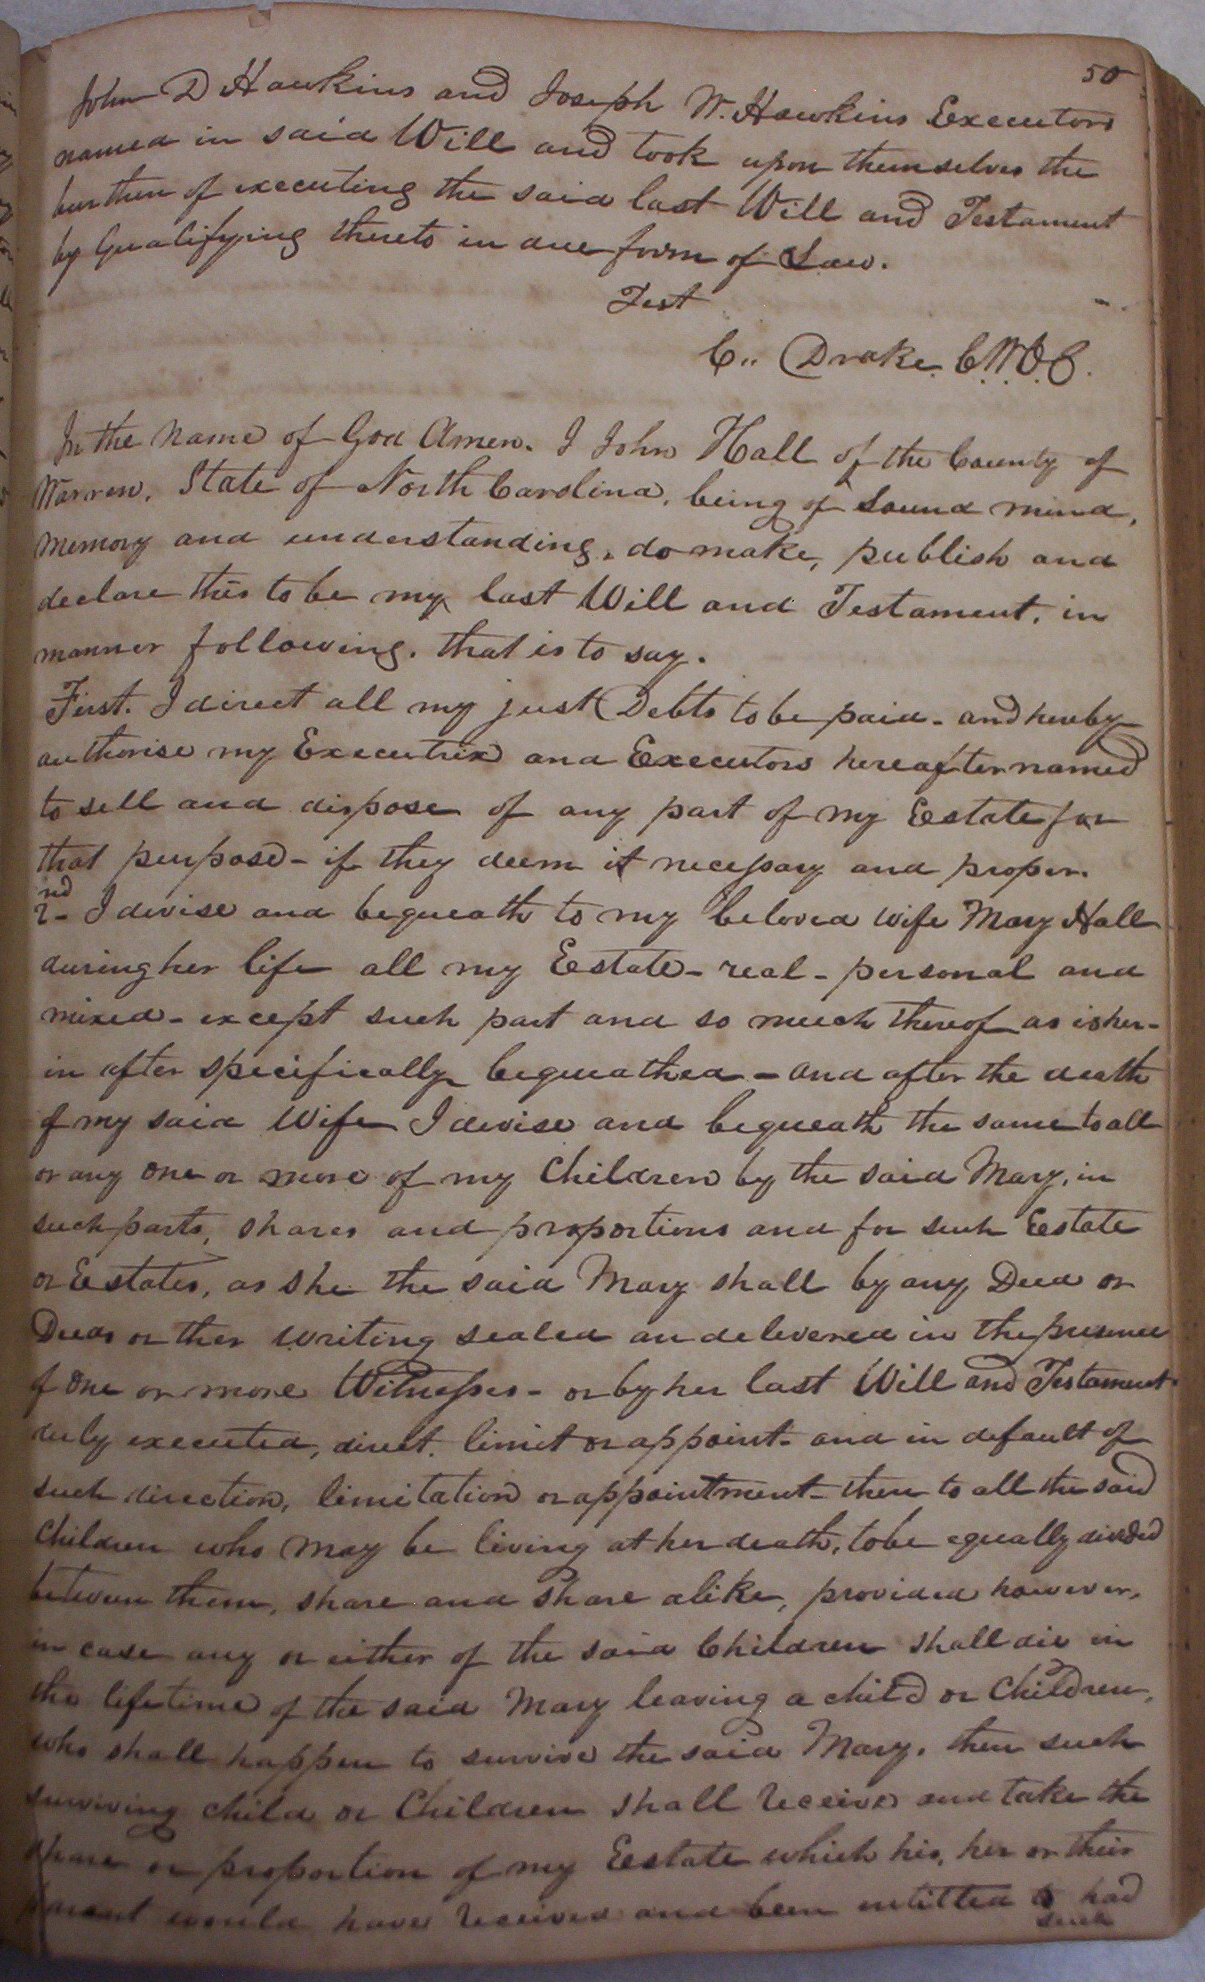 50
John D Hawkins and Joseph W. Hawkins Executors
named in said Will and took upon themselves the
burthen of executing the said last Will and Testament
by Qualifying thereto in due form of Law.
Test
C.. Drake C.W.C.C.
In the Name of God Amen. I John Hall of the County of
Warren, State of North Carolina, being of Sound mind,
memory and understanding, do make, publish and
declare this to be my last Will and Testament, in
manner following, that is to say.
First. I direct all my just Debts to be paid - and hereby
authorise my Executrix and Executors hereafter named
to sell and dispose of any part of my Eestate for
that purpose - if they deem it necessary and proper.
2nd - I devise and bequeath to my beloved wife Mary Hall
during her life all my Eestate - real - personal and
mixed - except such part and so much thereof as is her-
in after specifically bequeathed - and after the death
of my said Wife I devise and bequeath the same to all
or any one or more of my Children by the said Mary, in
such parts, shares and proportions and for such Eestate
or Eestates, as she the said Mary shall by any Deed or
Deeds or ther writing sealed an delivered in the presence
of one or more Witnesses - or by her last Will and Testament
duly executed, direct, limit or appoint - and in default of
such direction, limitation or appointment - then to all the said
Children who may be living at her death, to be equally divided
between them, share and share alike, provided however,
in case any or either of the said Children shall die in
the lifetime of the said Mary leaving a child or Children,
who shall happen to survive the said Mary, then such
surviving child or Children shall receive and take the
share or proportion of my Eestate which his, her or their
parent would have received and been intitled to had
such